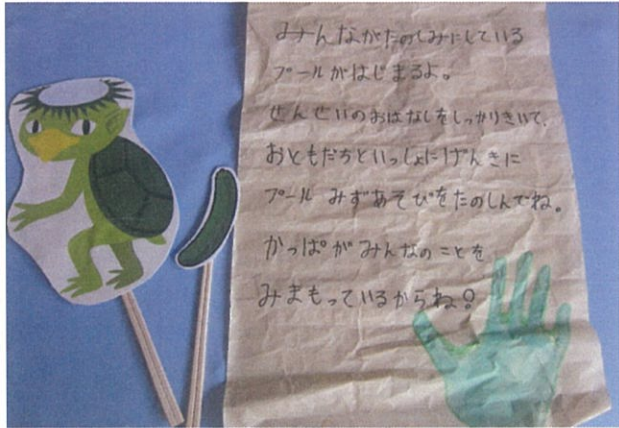 みんながたのしみにしている
プールがはじまるよ。
せんせいのおはなしをしっかりきいて、
おともだちといっしょにげんきに
プール みずあそびをたのしんでね。
かっぱがみんなのことを
みまもっているからね♀